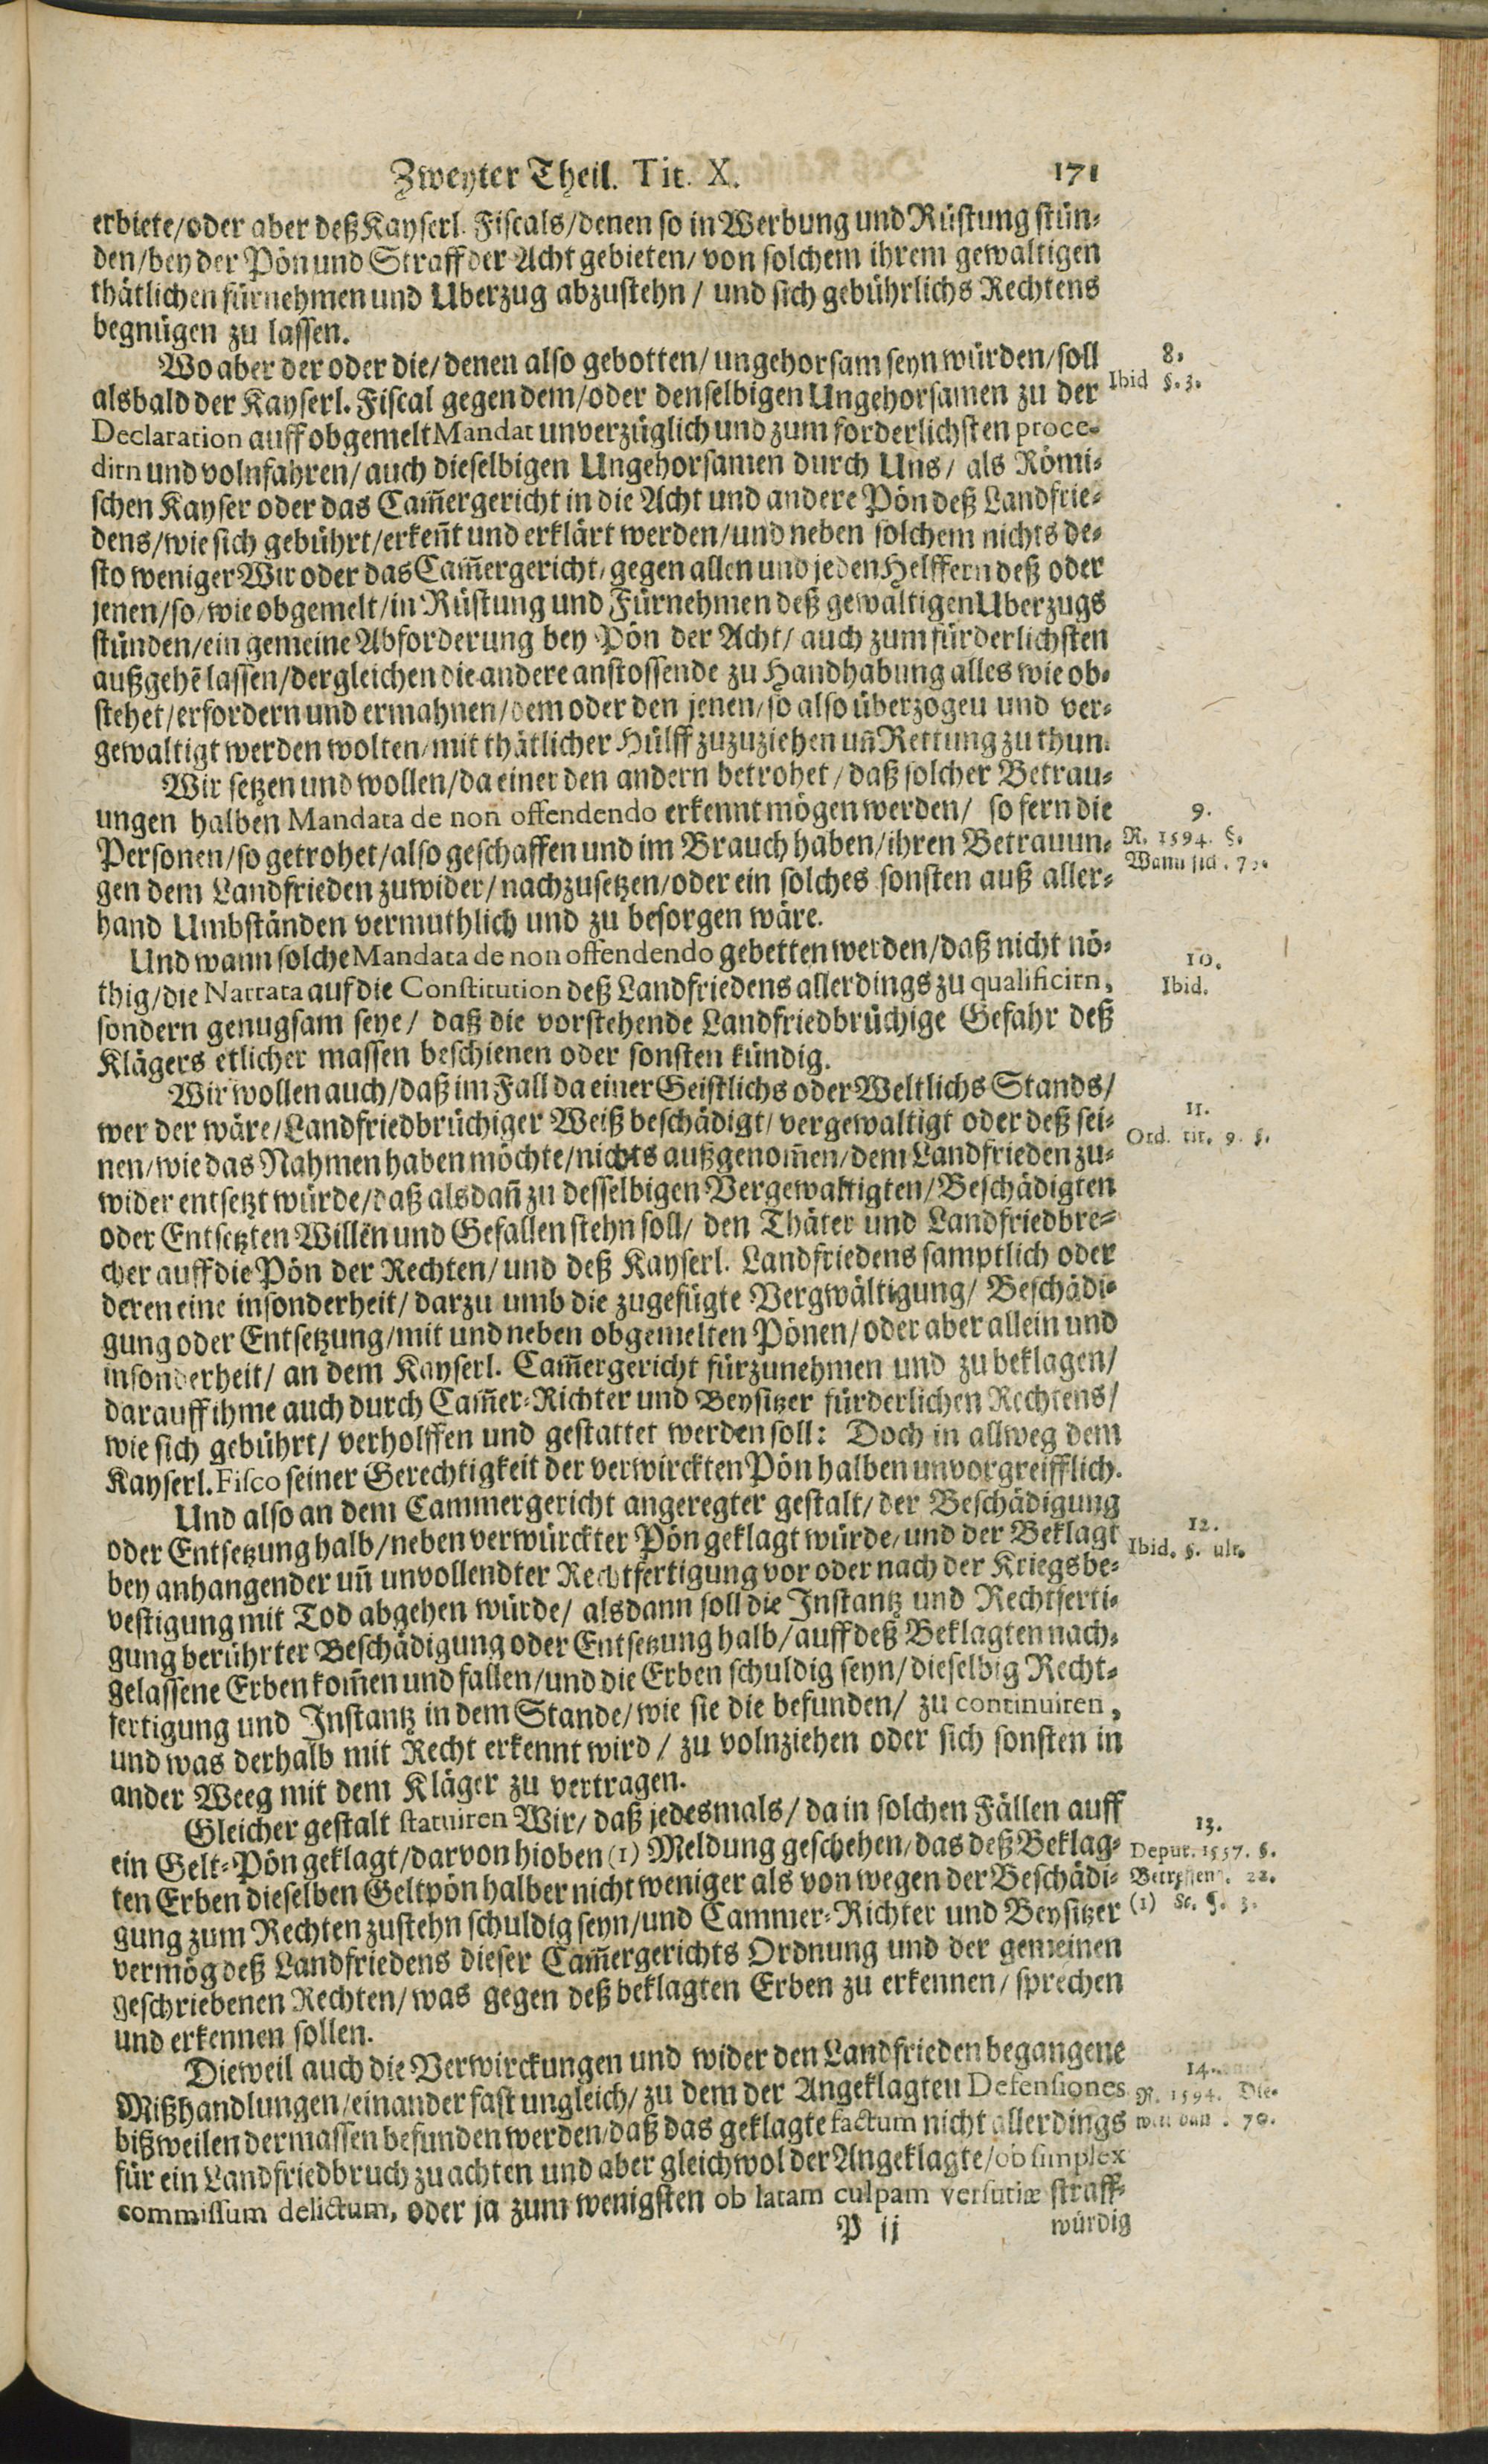 Zweyter Theil. Tit. X. 171
erbiete/oder aber deß Kayserl. Fiscals/denen so in Werbung und Rüstung stün-
den/bey der Pön und Straff der Acht gebieten/von solchem ihrem gewaltigen
thätlichen fürnehmen und Uberzug abzustehn/ und sich gebührlichs Rechtens
begnügen zu lassen.
Wo aber der oder die/denen also gebotten/ungehorsam seyn würden/soll
8.
alsbald der Kayserl. Fiscal gegen dem/oder denselbigen Ungehorsamen zu der
Ibid §. 3.
Declaration auff obgemelt Mandat unverzüglich und zum forderlichsten proce-
dirn und volnfahren/auch dieselbigen Ungehorsamen durch Uns/ als Römi-
schen Kayser oder das Cam̃ergericht in die Acht und andere Pön deß Landfrie-
dens/wie sich gebührt/erkeñt und erklärt werden/und neben solchem nichts de-
sto weniger Wir oder das Cam̃ergericht/gegen allen und jeden Helffern deß oder
jenen/so/wie obgemelt/in Rüstung und Fürnehmen deß gewaltigen Uberzugs
stünden/ein gemeine Abforderung bey Pön der Acht/auch zum fürderlichsten
außgehẽ lassen/dergleichen die andere anstossende zu Handhabung alles wie ob-
stehet/erfordern und ermahnen/dem oder den jenen/so also überzogeu und ver-
gewaltigt werden wolten/mit thätlicher Hülff zuzuziehen uñ Rettung zu thun.
Wir setzen und wollen/da einer den andern betrohet/daß solcher Betrau-
ungen halben Mandata de non offendendo erkennt mögen werden/ so fern die
9.
Personen/so getrohet/also geschaffen und im Brauch haben/ihren Betrauun-
R. 1594. §.
gen dem Landfrieden zuwider/nachzusetzen/oder ein solches sonsten auß aller-
Wann sich.
hand Umbständen vermuthlich und zu besorgen wäre.
Und wann solche Mandata de non offendendo gebetten werden/daß nicht nö-
10.
thig/die Narrata auf die Constitution deß Landfriedens allerdings zu qualificirn,
Ibid.
sondern genugsam seye/ daß die vorstehende Landfriedbrüchige Gefahr deß
Klägers etlicher massen beschienen oder sonsten kündig.
Wir wollen auch/daß im Fall da einer Geistlichs oder Weltlichs Stands/
wer der wäre/Landfriedbrüchiger Weiß beschädigt/vergewaltigt oder deß sei-
11.
nen/wie das Nahmen haben möchte/nichts außgenom̃en/dem Landfrieden zu-
Ord. tit. 9. §.
wider entsetzt würde/daß alsdañ zu desselbigen Vergewaltigten/Beschädigten
oder Entsetzten Willen und Gefallen stehn soll/ den Thäter und Landfriedbre-
cher auff die Pön der Rechten/ und deß Kayserl. Landfriedens samptlich oder
deren eine insonderheit/darzu umb die zugefügte Vergwältigung/ Beschädi-
gung oder Entsetzung/mit und neben obgemelten Pönen/oder aber allein und
insonderheit/ an dem Kayserl. Cam̃ergericht fürzunehmen und zu beklagen/
darauff ihme auch durch Cam̃er-Richter und Beysitzer fürderlichen Rechtens/
wie sich gebührt/ verholffen und gestattet werden soll: Doch in allweg dem
Kayserl. Fisco seiner Gerechtigkeit der verwirckten Pön halben unvorgreifflich.
Und also an dem Cammergericht angeregter gestalt/der Beschädigung
12.
oder Entsetzung halb/neben verwürckter Pön geklagt würde/und der Beklagt
Ibid. §. ult.
bey anhangender uñ unvollendter Rechtfertigung vor oder nach der Kriegsbe-
vestigung mit Tod abgehen würde/ alsdann soll die Instantz und Rechtferti-
gung berührter Beschädigung oder Entsetzung halb/auff deß Beklagten nach-
gelassene Erben kom̃en und fallen/und die Erben schuldig seyn/dieselbig Recht-
fertigung und Instantz in dem Stande/wie sie die befunden/ zu continuiren,
und was derhalb mit Recht erkennt wird/ zu volnziehen oder sich sonsten in
ander Weeg mit dem Kläger zu vertragen.
Gleicher gestalt statuiren Wir/ daß jedesmals/ da in solchen Fällen auff
13.
ein Gelt-Pön geklagt/darvon hioben (1) Meldung geschehen/das deß Beklag-
Deput. 1557. §.
ten Erben dieselben Geltpön halber nicht weniger als von wegen der Beschädi-
22.
gung zum Rechten zustehn schuldig seyn/und Cammer-Richter und Beysitzer
(1) §. 3.
vermög deß Landfriedens dieser Cam̃ergerichts Ordnung und der gemeinen
geschriebenen Rechten/was gegen deß beklagten Erben zu erkennen/sprechen
und erkennen sollen.
Dieweil auch die Verwirckungen und wider den Landfrieden begangene
14.
Mißhandlungen/einander fast ungleich/zu dem der Angeklagteu Defensiones
R. 1594. Die-
bißweilen dermassen befunden werden/daß das geklagte factum nicht allerdings
weil dañ.
für ein Landfriedbruch zu achten und aber gleichwol der Angeklagte/ob simplex
commissum delictum, oder ja zum wenigsten ob latam culpam versutiæ straff-
P ij würdig